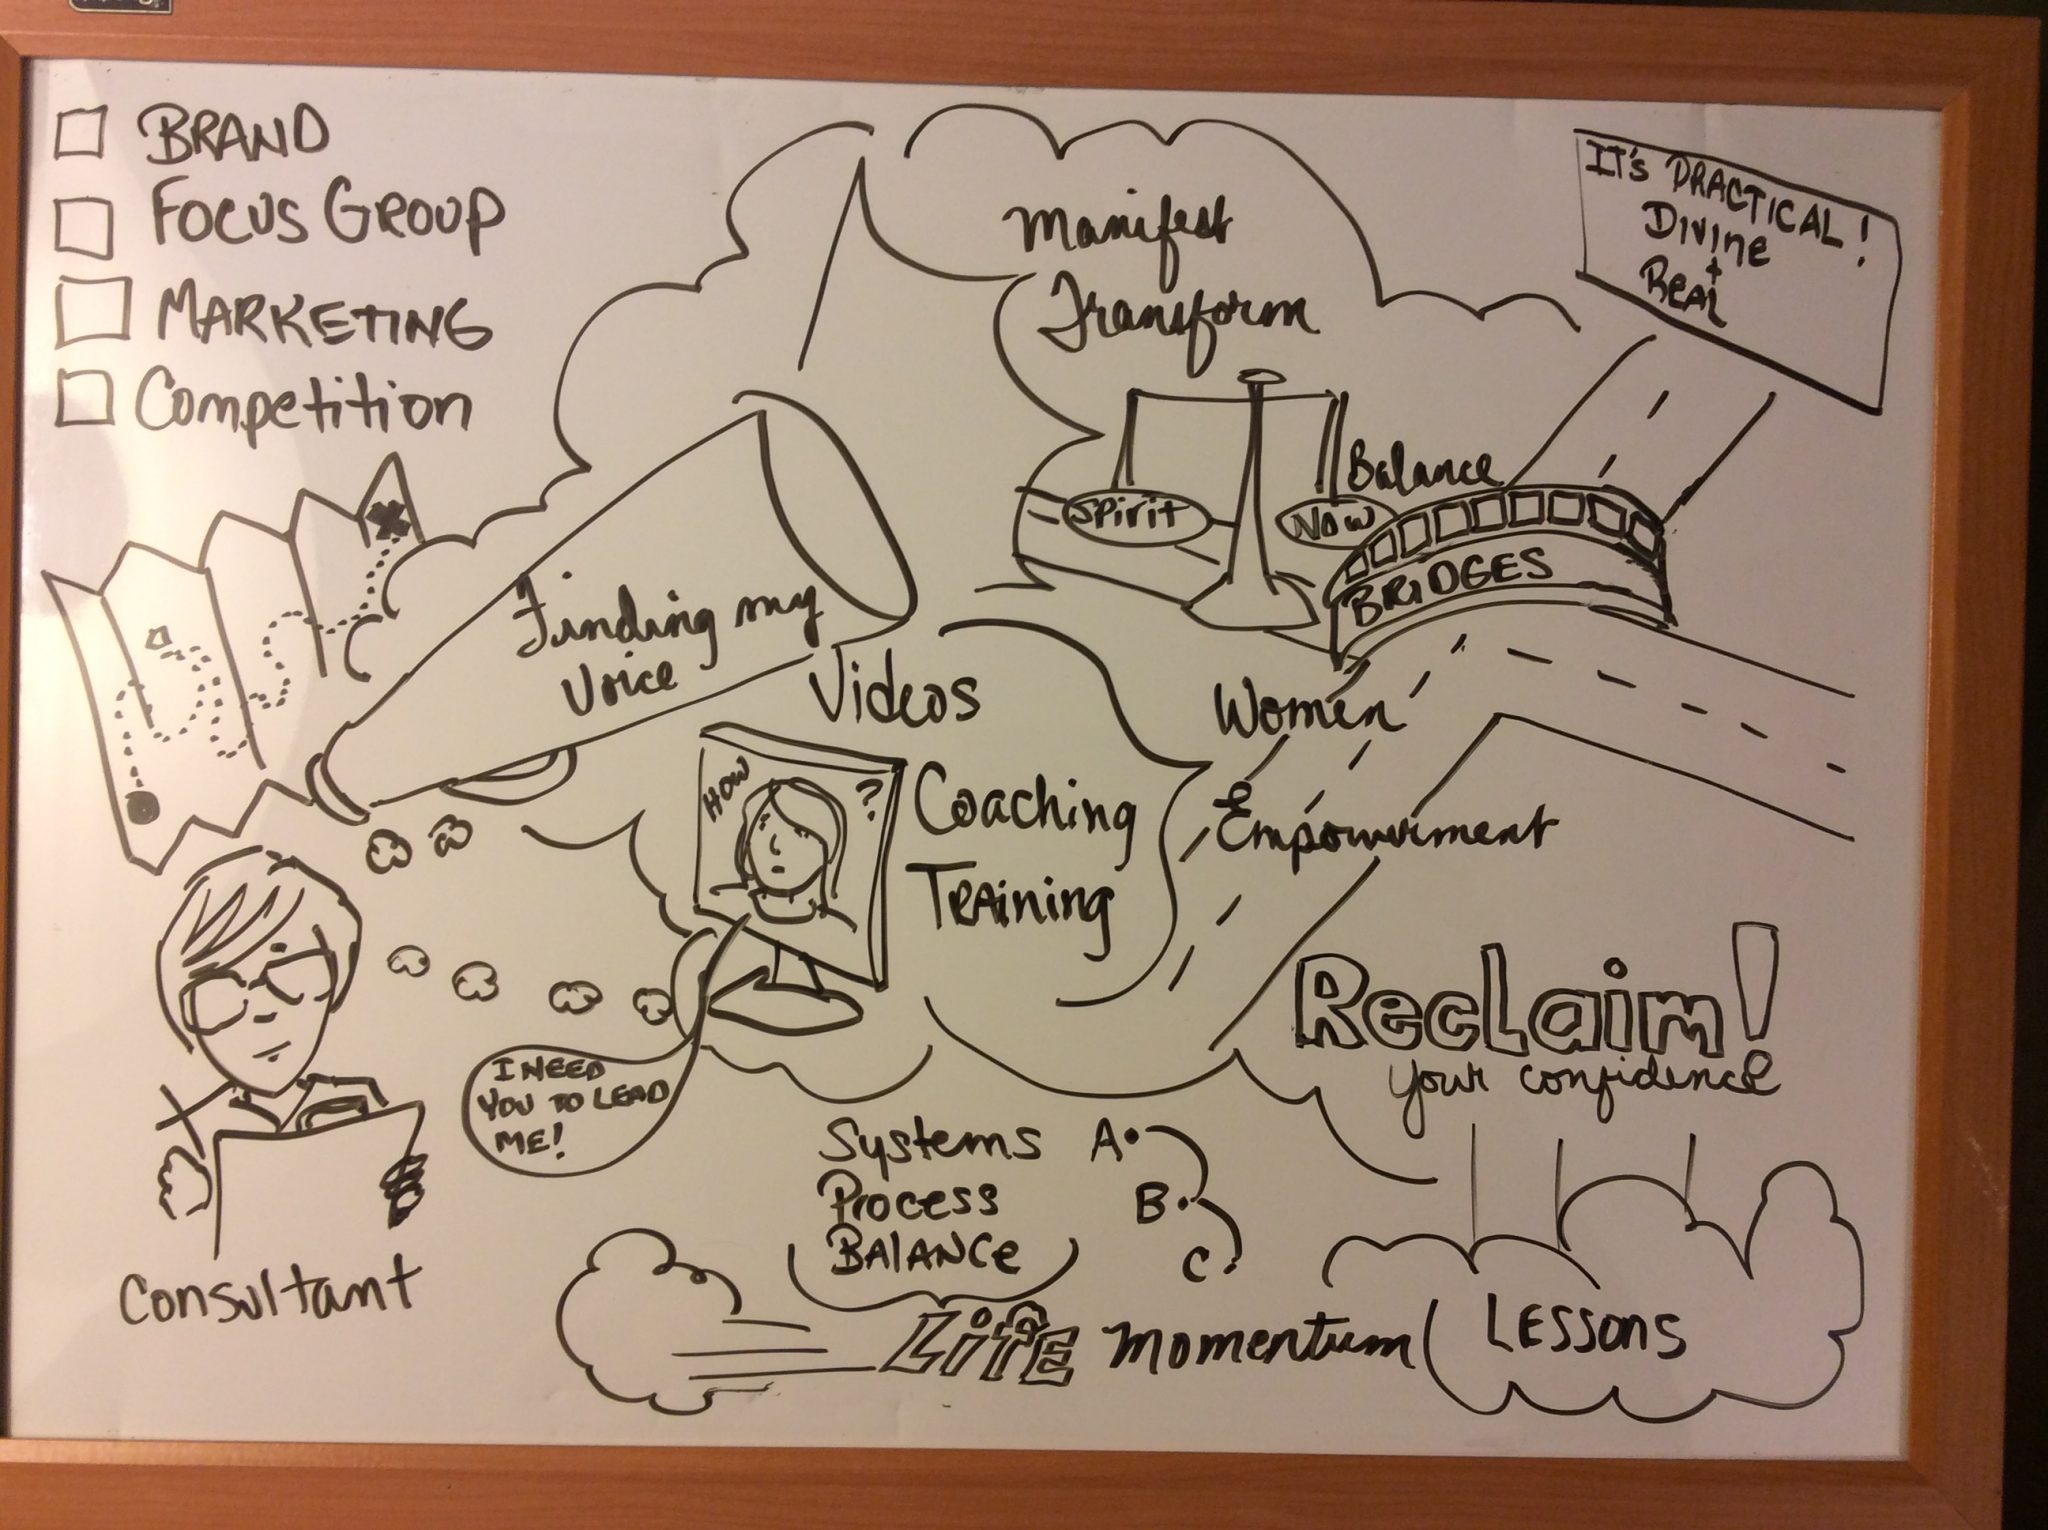 BRAND
FOCUS GROUP
MARKETING
Competition
Manifest
Transform
IT'S PRACTICAL!
DIVINE
+
Real
Balance
Spirit
Now
BRIDGES
Finding my
Voice
Videos
Coaching
Training
HOW
?
Women
Empowerment
Reclaim!
your confidence
I NEED
YOU TO LEAD
ME!
Consultant
Systems
Process
BALANCE
A
B
C
Life Momentum
LESSONS